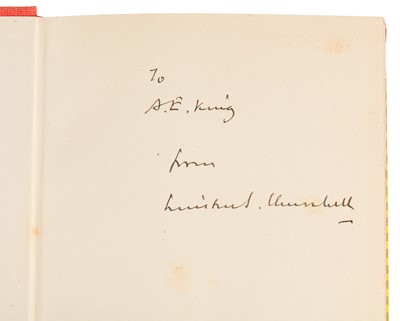 To
A.E. King
from
Winston S. Churchill